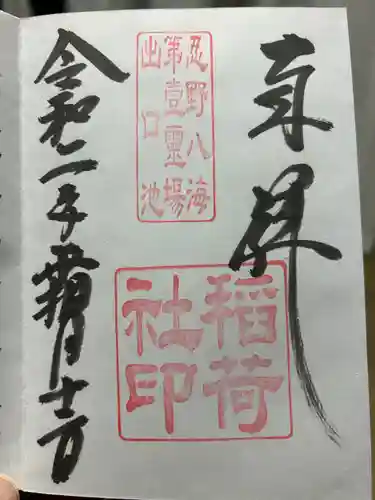 奉拝
忍野八海
第壹靈場
出口池
稲荷
社印
令和二年霜月十二日